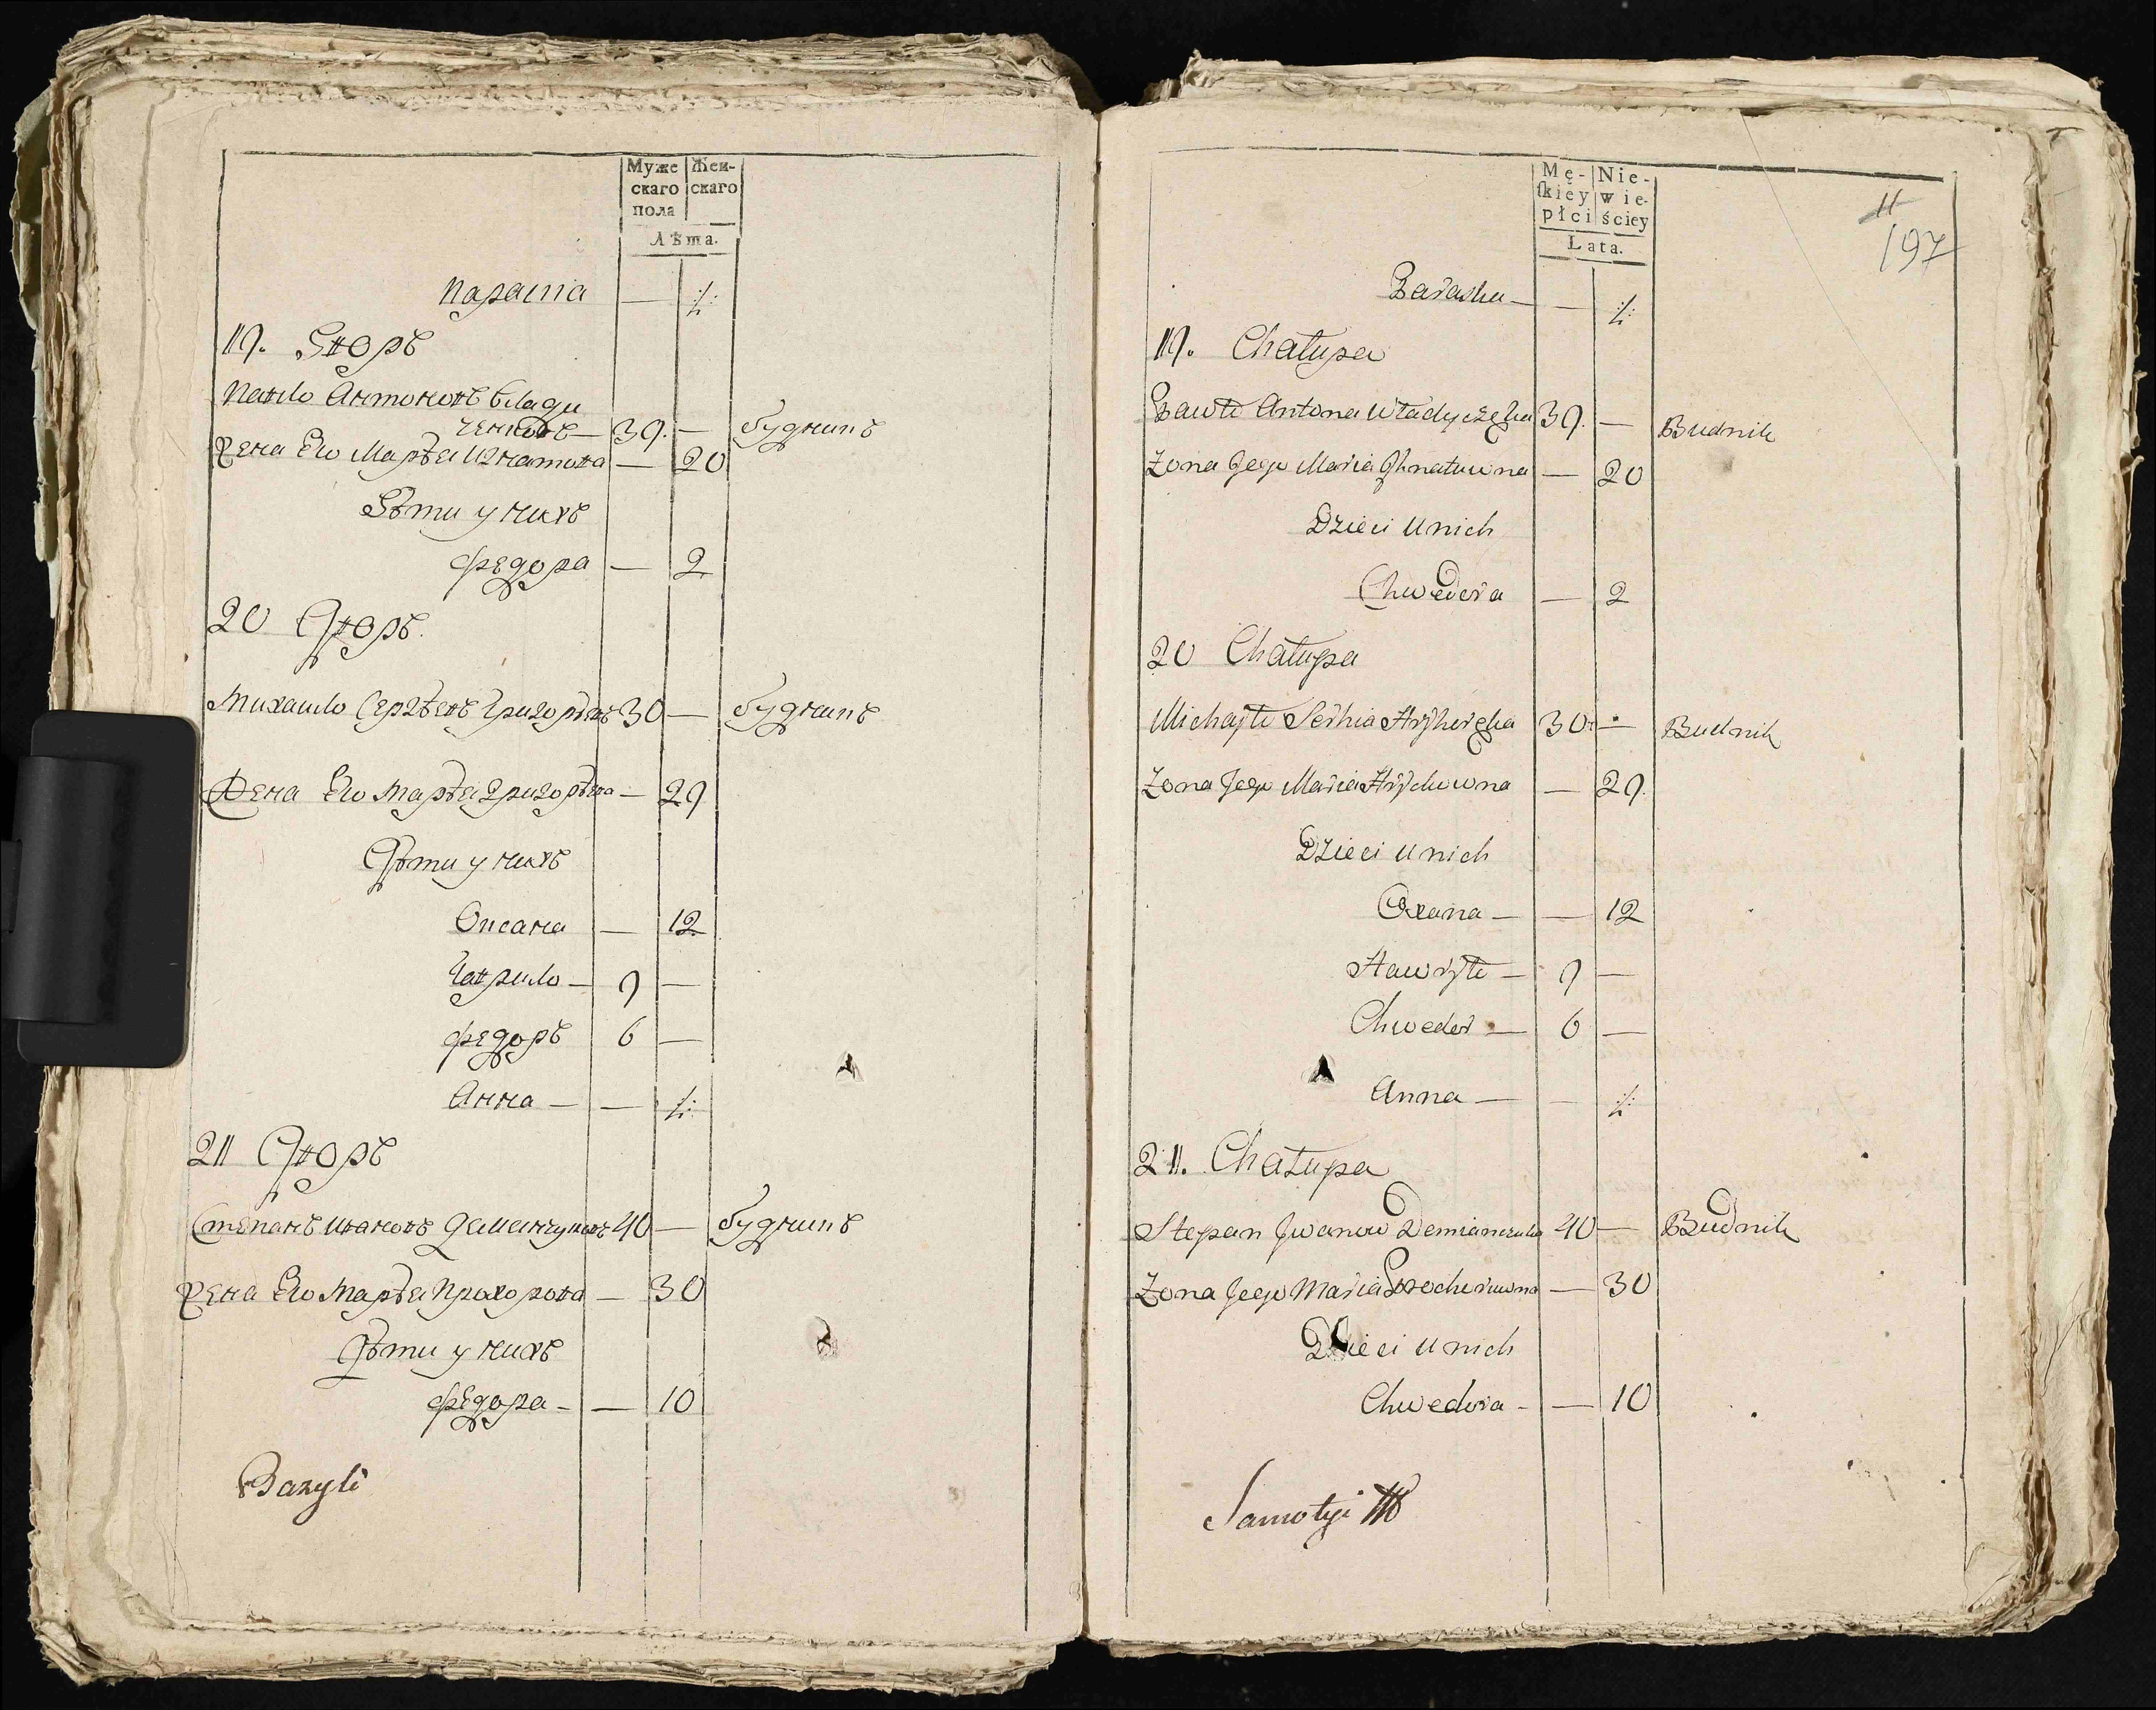 Муже Жен-
скаго скаго
пола
Лѣта.
Параскa — ·/·
19. Дворъ
Павло Антоновъ Влади
ченковъ — 39. — будникъ
Жена Его Марѣя Игнатова — 20
Дѣти у нихъ
Федора — 2
20 Дворъ.
Михаило Сергѣевъ Григорѣевъ 30 — будникъ
Жена Его Марѣя Григорѣева — 29
Дѣти у нихъ
Оксана — 12
Гаврило — 9 —
Федоръ 6 —
Анна — — ·/·
21 Дворъ
Степанъ Ивановъ Деманчуковъ 40 — будникъ
Жена Его Марѣя Прохорова — 30
Дѣти у нихъ
Федора — — 10
Bazyli
Mę- Nie-
ſkiey wie-
płci ściey
Lata.
11
197
Paraska — — ·/·
19. Chałupa
Pawło Antona Władyczęka 39. — Budnik
Zona Jego Maria Ihnatuwna — 20
Dzieci u nich
Chwedora — 2
20 Chałupa
Michajło Serhia Hryhoręka 30 — Budnik
Zona Jego Maria Hrychuwna — 29.
Dzieci u nich
Oxana — — 12
Hawryło — 9 —
Chwedor — 6 —
Anna — — ·/·
21. Chałupa
Stepan Jwanow Demianczuka 40 — Budnik
Zona Jego Maria Prochoruwna — 30
Dzieci u nich
Chwedora — — 10
Samotyi